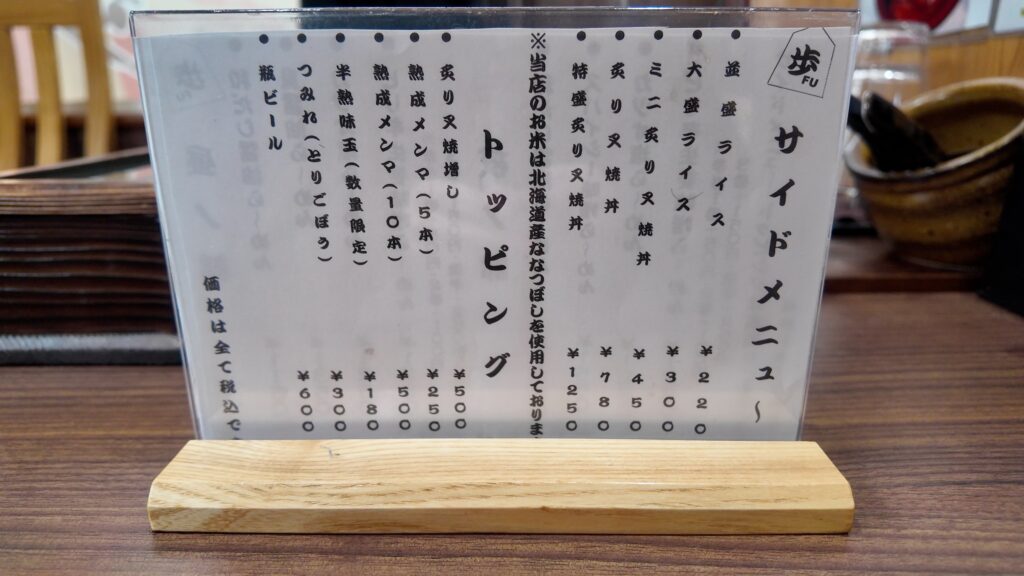 歩
FU
サイドメニュ～
●並盛ライス ¥220
●大盛ライス ¥300
●ミニ炙り叉焼丼 ¥450
●炙り叉焼丼 ¥780
●特盛炙り叉焼丼 ¥1250
※当店のお米は北海道産ななつぼしを使用しておりま
トッピング
●炙り叉焼増し ¥500
●熟成メンマ(5本) ¥250
●熟成メンマ(10本) ¥500
●半熟味玉(数量限定) ¥180
●つみれ(とりごぼう) ¥300
●瓶ビール ¥600
価格は全て税込で